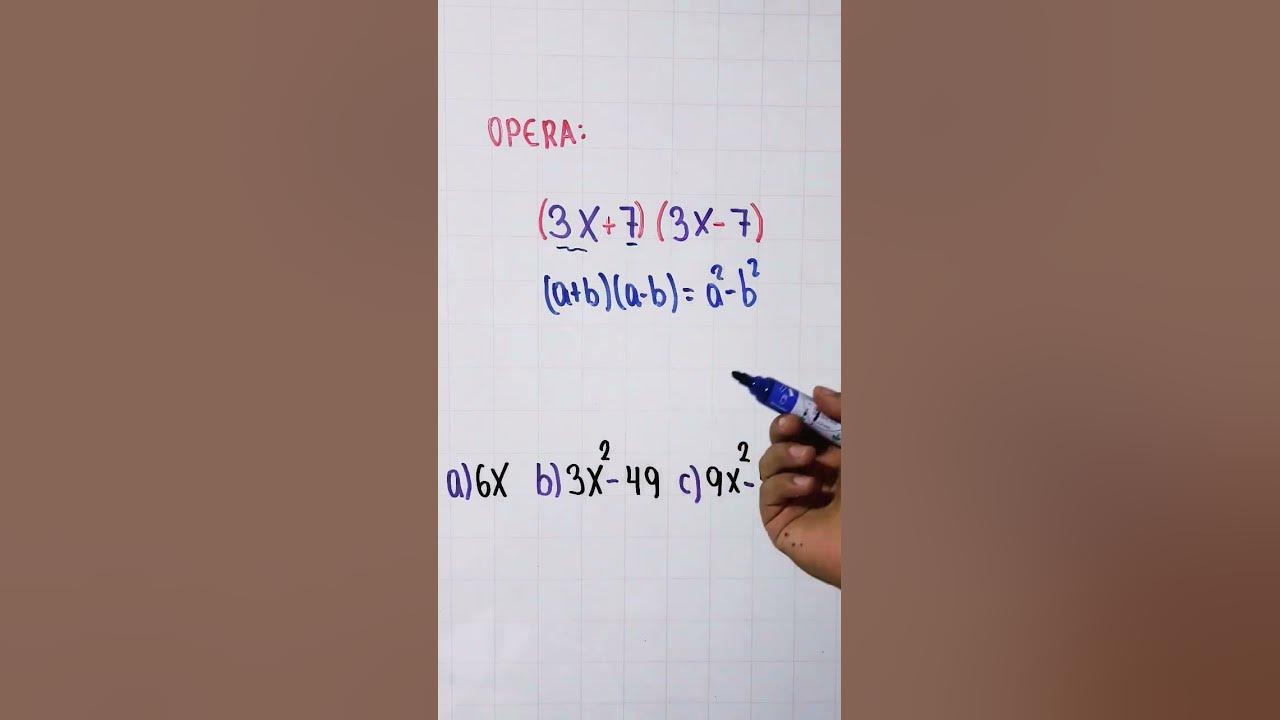 OPERA:
(3X+7)(3X-7)
(a+b)(a-b)=a²-b²
a)6X b)3X²-49 c)9X²-